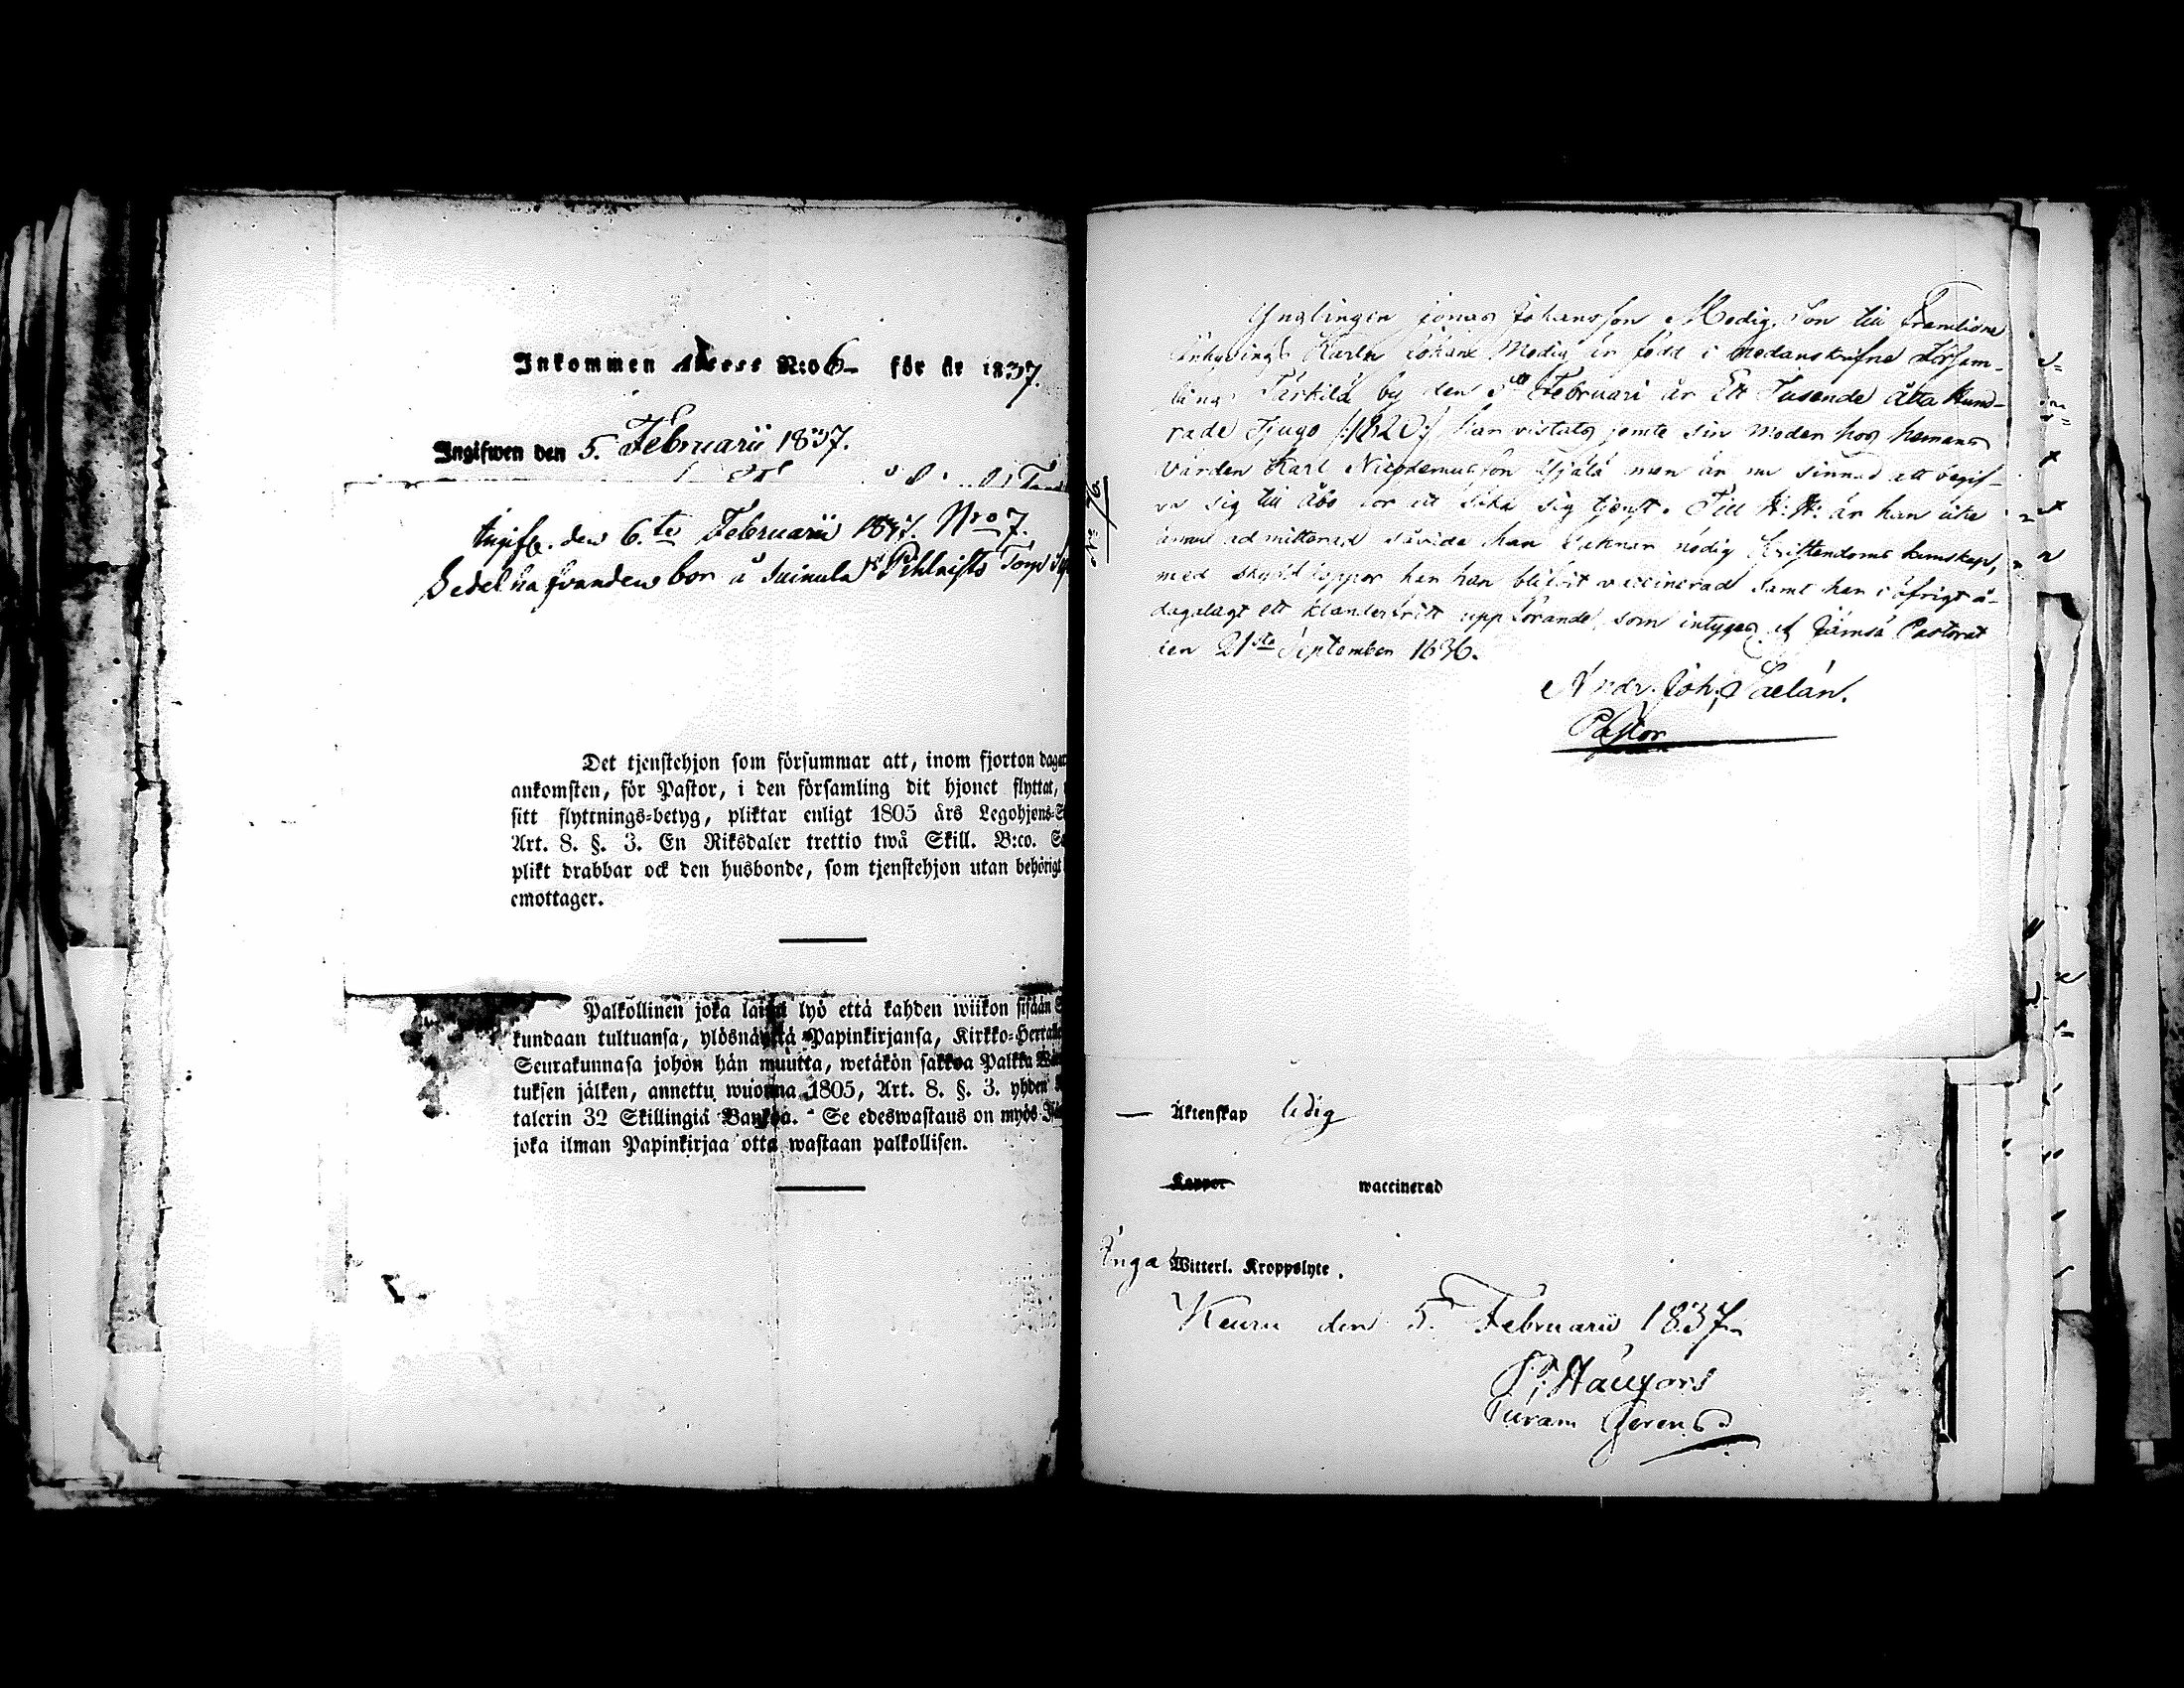 Inkommen N:o 6 för år 1837.
Ingifwen den 5. Februarii 1837.
Ingifv. den 6.te Februarii 1837. Nro 7.
Sedelhafvanden bor å Torp
Det tjenstehjon som försummar att, inom fjorton dagar
ankomsten, för Pastor, i den församling dit hjonet flyttat,
sitt flyttnings-betyg, pliktar enligt 1805 års Legohjons-S
Art. 8. §. 3. En Riksdaler trettio twå Skill. B:co. S
plikt drabbar ock den husbonde, som tjenstehjon utan behörigt
emottager.
Palkollinen joka laimi lyö että kahden wiikon sisään S
kundaan tultuansa, ylösnäyttä Papinkirjansa, Kirkko-Herralle
Seurakunnasa johon hän muutta, wetäkön sakkoa Palkka
tuksen jälken, annettu wuonna 1805, Art. 8. §. 3. yhden
talerin 32 Skillingiä Bankoa. Se edeswastaus on myös
joka ilman Papinkirjaa otta wastaan palkollisen.
No. 76.
Ynglingen Jonas Johansson Modig, Son till Framlidne
Karlen Johan Modig är född i nedanskrifne Församl-
lings Särkilä by den Februari år Ett Tusende åtta hund-
rade Tjugo /:1820:/ har vistats jemte sin Moder hos hemans
Värden Karl Nicodemusson men är nu sinnad att begif-
va sig till Åbo för att söka sig tjenst. Till H: N: är han icke
ännu admitterad såvida han saknar nödig Christendoms kunskap,
med skyddskoppor har han blifvit vaccinerad samt har i öfrigt å-
dagalagt ett klanderfritt uppförande, som intygas af Jämsä Pastorat
den 21sta September 1836.
Andr. Joh. Saelán.
Pastor
— Äktenskap ledig
Koppor waccinerad
Inga Witterl. Kroppslyte.
Keuru den 5. Februarii 1837.
Curam Gerens